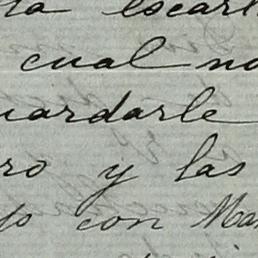 ta escarl
cual no
uardarle
ro y las
con Mar